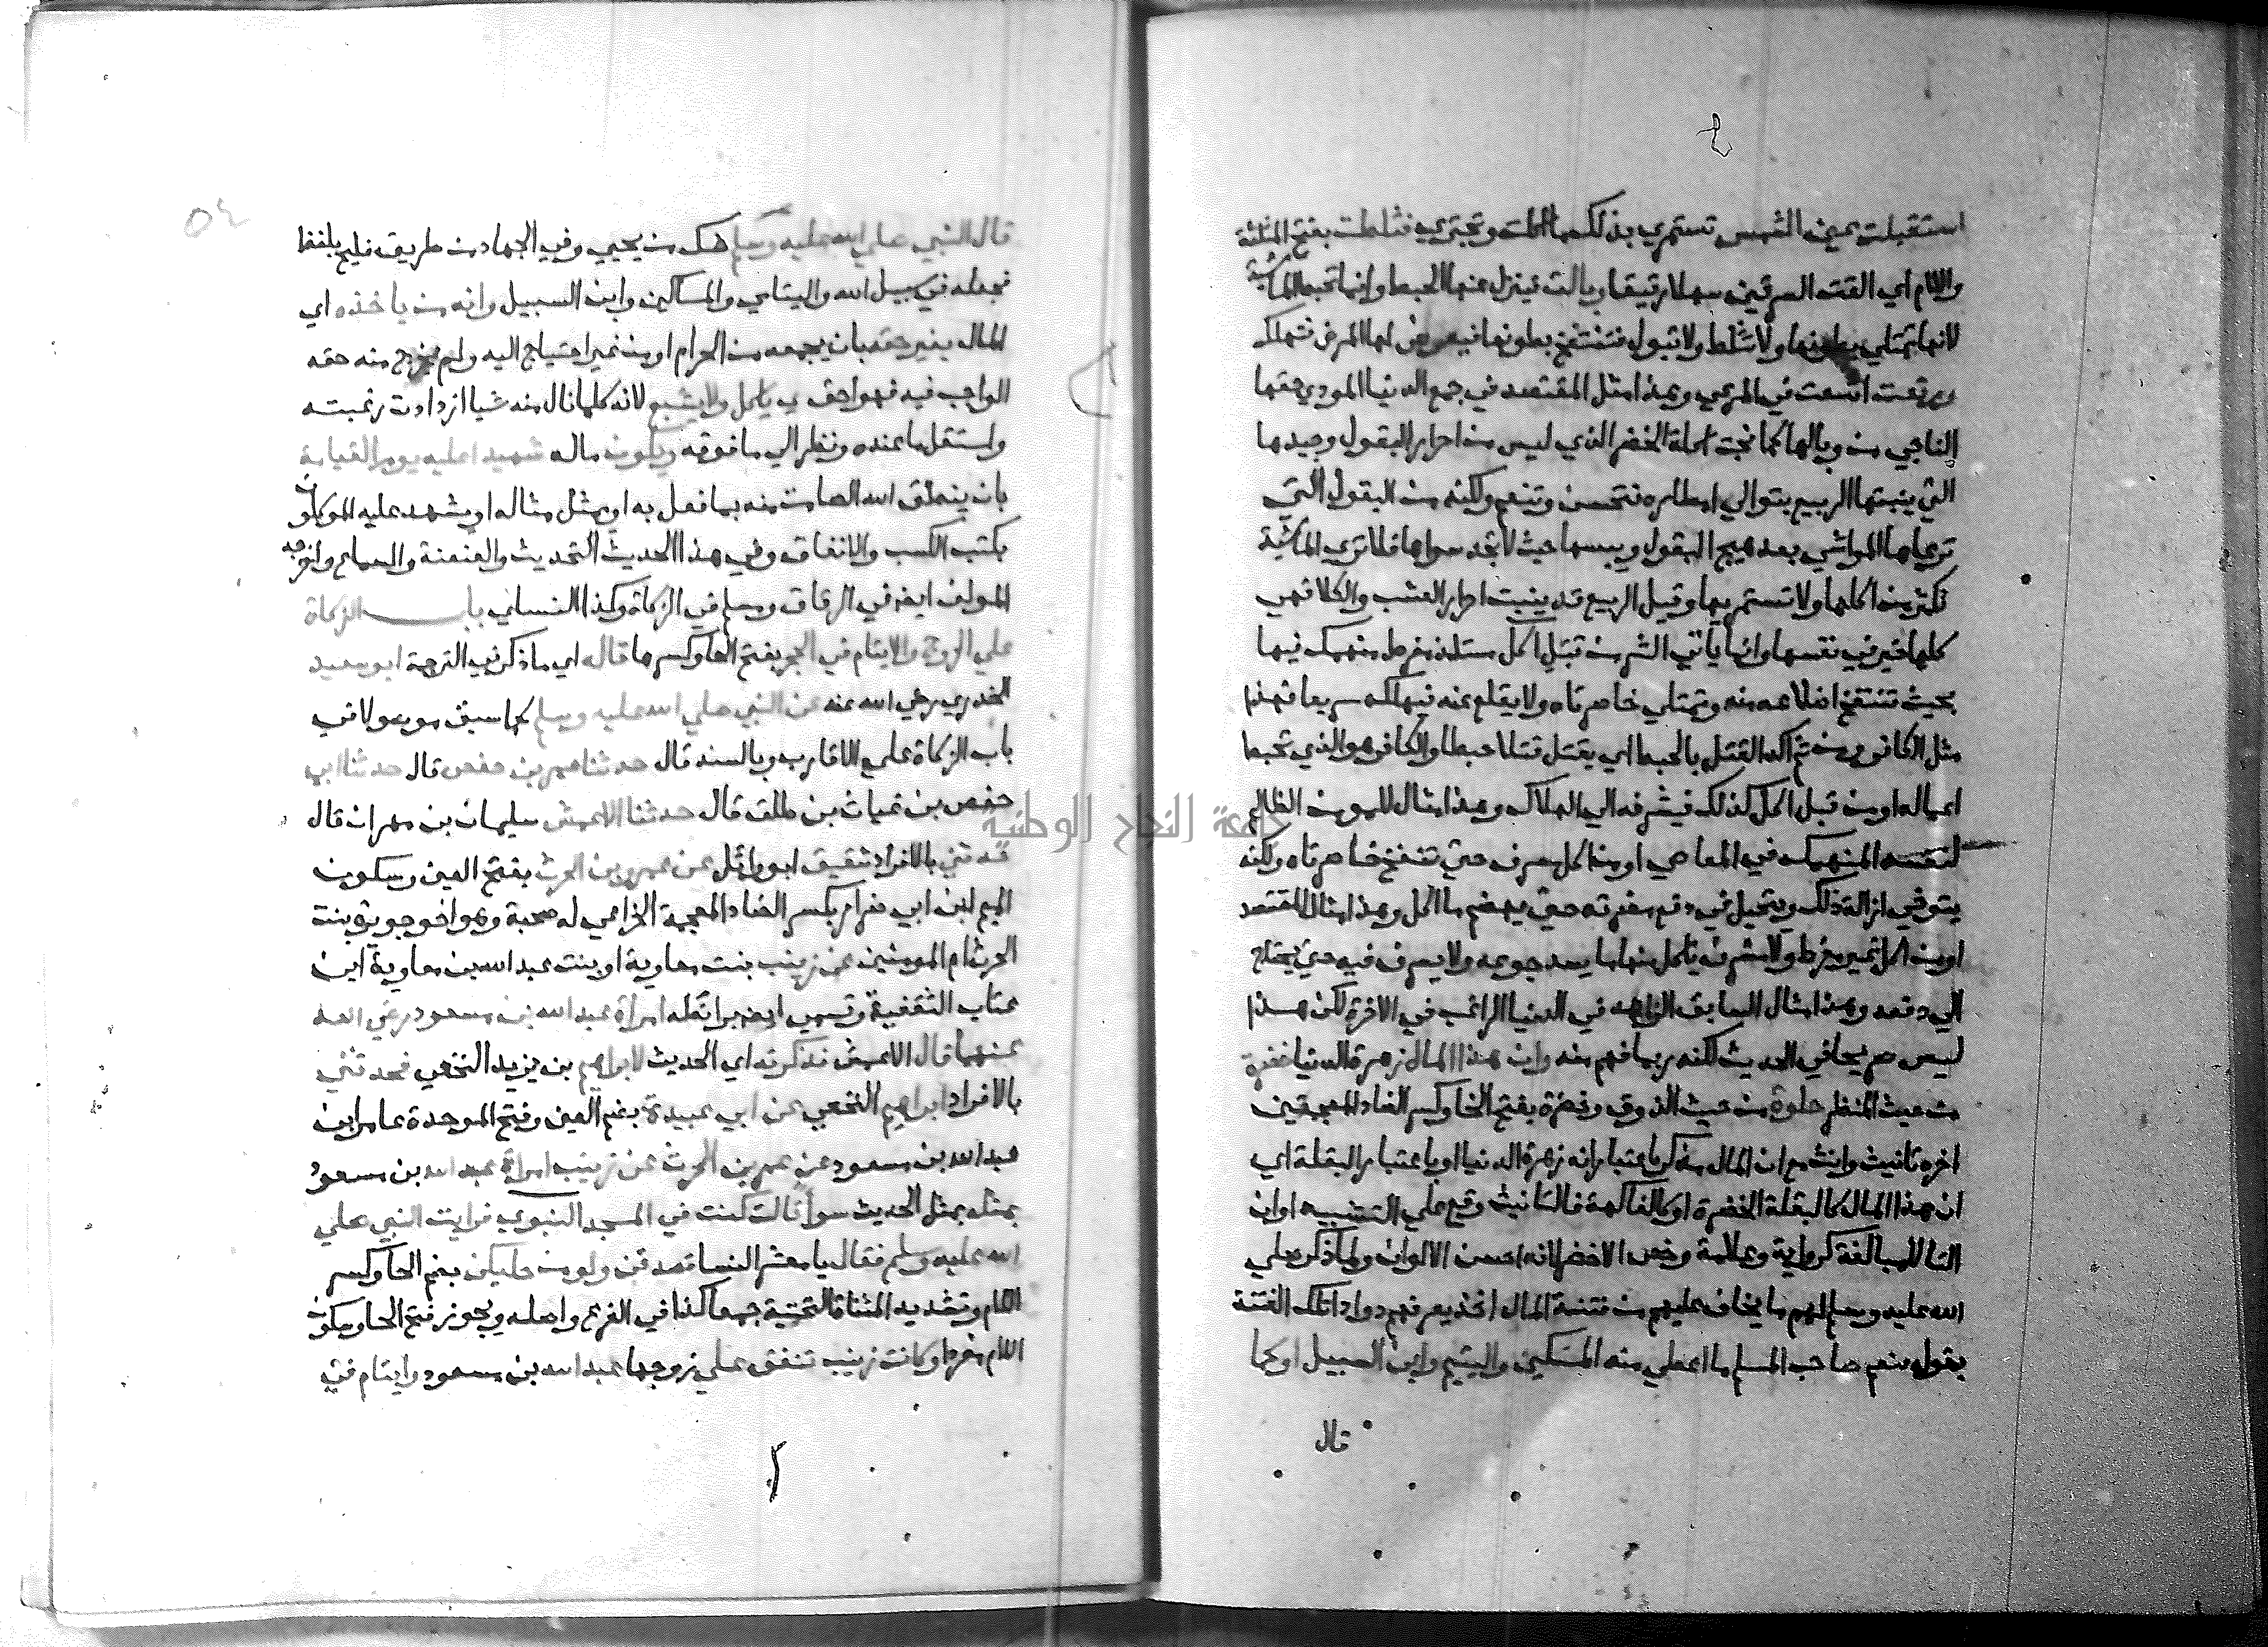 استقبلت عين الشمس تستمري بذلك ما اكلت وتجتري فثلطت بفتح المثلثة
واللام اي القت السرقين سهلا رقيقا وبالت فينزل عنها الحبط وانما تحبط الماشية
لانها تمتلي بطونها ولا تثلط ولا تبول فتنتفخ بطونها فيعرض لها المرض فتهلك
ورتعت اتسعت في المرعي وهذا مثل المقتصد في جمع الدنيا المودي حقها
الناجي من وبالها كما نجت اكلة الخضر الذي ليس من احرار البقول وجيدها
التي ينبتها الربيع بتوالي امطاره فتحسن وتنعم ولكنه من البقول التي
ترعاها المواشي بعد هيج البقول ويبسها حيث لا تجد سواها فلا تري الماشية
تكثر من اكلها ولا تستمريها وقيل الربيع قد ينبت احرار العشب والكلا فهي
كلها خير في نفسها وانما ياتي الشر من قبل اكل مستلذ مفرط منهمك فيها
بحيث تنتفخ اضلاعه منه وتمتلي خاصرتاه ولا يقلع عنه فيهلكه سريعا فهذا
مثل الكافر ومن ثم اكد القتل بالحبط اي يقتل قتلا حبطا والكافر هو الذي تحبط
اعماله او من قبل اكل كذلك فيشرفه الي الهلاك وهذا مثال للمومن الظالم
لنفسه المنهمك في المعاصي او من اكل مسرف حتي تنتفخ خاصرتاه ولكنه
يتوخي ازالة ذلك ويتحيل في دفع مضرته حتي يهضم ما اكل وهذا مثال المقتصد
او من اكل غير مفرط ولا مسرف ياكل منها ما يسد جوعه ولا يسرف فيه حتي يحتاج
الي دفعه وهذا مثال السابق الزاهد في الدنيا الراغب في الاخرة لكن هذا
ليس صريحا في الحديث لكنه ربما فهم منه وان هذا المال زهرة الدنيا خضرة
من حيث المنظر حلوة من حيث الذوق وخضرة بفتح الخا وكسر الضاد المعجمتين
اخره تانيث وانث مع ان المال مذكر باعتبار انه زهرة الدنيا او باعتبار البقلة اي
ان هذا المال كالبقلة الخضرة او كالفاكهة فالتانيث وقع علي التشبيه او ان
التا للمبالغة كراوية وعلامة وخص الاخضر لانه احسن الالوان ولما ذكر صلي
الله عليه وسلم لهم ما يخاف عليهم من فتنة المال اخذ يعرفهم دوا داتلك الفتنة
بقوله فنعم صاحب المسلم ما اعطي منه المسكين واليتيم وابن السبيل او كما
قال
٥٤
قال النبي صلي الله عليه وسلم شك من يحيي وفي الجهاد من طريق فليح بلفظ
فجعله في سبيل الله واليتامي والمساكين وابن السبيل وانه من ياخذه اي
المال بغير حقه بان يجمعه من الحرام او من غير احتياج اليه ولم يخرج منه حقه
الواجب فيه فهو احق ي ياكل ولا يشبع لانه كلما نال منه شيا ازدادت رغبته
واستقل ما عنده ونظر الي ما فوقه ويكون ماله شهيدا عليه يوم القيامة
بان ينطق الله الصامت منه بما فعل به او يمثل مثاله او يشهد عليه الموكلون
بكتب الكسب والانفاق وفي هذا الحديث التحديث والعنعنة والسماع واخرجه
المولف ايضا في الرقاق ومسلم في الزكاة وكذا النسائي باب الزكاة
علي الزوج والايتام في الحجر بفتح الحا وكسرها قاله اي ما ذكر في الترجمة ابو سعيد
الخدري رضي الله عنه عن النبي صلي الله عليه وسلم كما سبق موصولا في
باب الزكاة علي الاقارب وبالسند قال حدثنا عمر بن حفص قال حدثنا ابي
حفص بن غياث بن طلق قال حدثنا الاعمش سليمان بن مهران قال
حدثني بالافراد شقيق ابو وائل عن عمرو بن الحرث بفتح العين وسكون
الميم ابن ابي ضرار بكسر الضاد المعجمة الخزاعي له صحبة وهو اخو جويرية بنت
الحرث ام المومنين عن زينب بنت معاوية او بنت عبد الله بن معاوية ابن
عتاب الثقفية وتسمي ايضا برائطه امراة عبد الله بن مسعود رضي الله
عنهما قال الاعمش فذكرته اي الحديث لابراهيم بن يزيد النخعي فحدثني
بالافراد ابراهيم النخعي عن ابي عبيدة بضم العين وفتح الموحدة عامر ابن
عبد الله بن مسعود عن عمرو بن الحرث عن زينب امراة عبد الله بن مسعود
بمثله بمثل الحديث سوا قالت كنت في المسجد النبوي فرايت النبي صلي
الله عليه وسلم فقال يا معشر النسا تصدقن ولو من حليكن بضم الحا وكسر
اللام وتشديد المثناة التحتية جمعا كذا في الفرع واصله ويجوز فتح الحا وسكون
اللام مفردا وكانت زينب تنفق علي زوجها عبد الله بن مسعود وايتام في
جامعة النجاح الوطنية